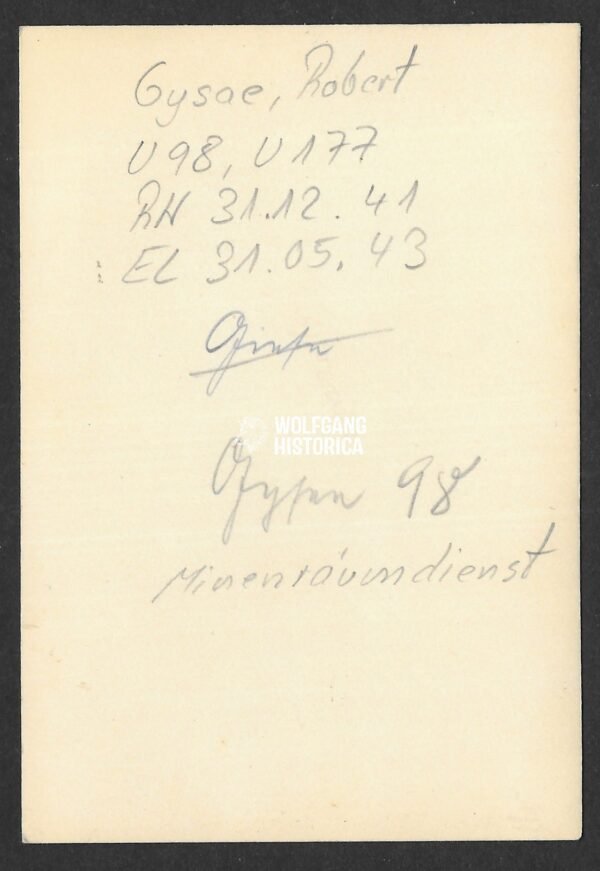 Gysae, Robert
U 98, U 177
RK 31.12.41
EL 31.05.43
WOLFGANG
HISTORICA
Gysae 98
Minenräumdienst